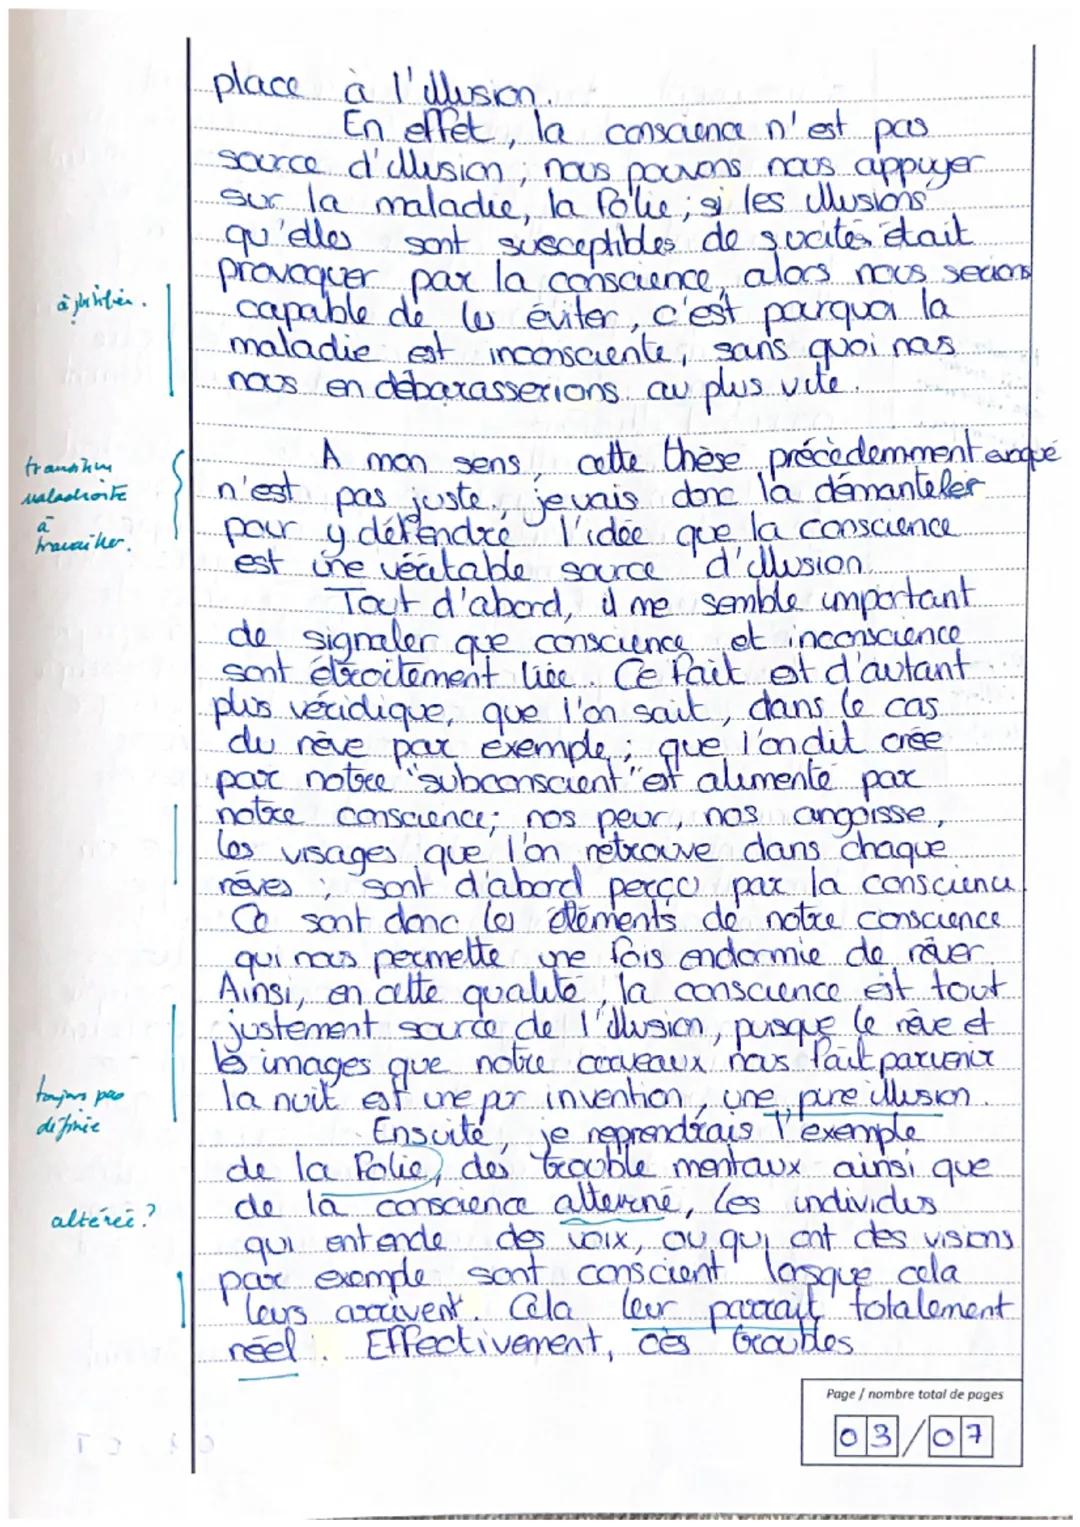 place à l'illusion.
En effet, la conscience n'est pas
source d'illusion, nous pouvons nous appuyer
sur la maladie, la folie ; si les illusions
qu'elles sont susceptibles de sucités était
provoquer par la conscience, alors nous serions
à justifier.
capable de les éviter, c'est pourquoi la
maladie est inconsciente, sans quoi nous
nous en débarasserions au plus vite.
A mon sens, cette thèse précèdemment évoqué
transition
maladroite
à
travailler.
n'est pas juste, je vais donc la démanteler
pour y défendre l'idée que la conscience
est une véritable source d'illusion.
Tout d'abord, il me semble important
de signaler que conscience et inconscience
sont étroitement liée. Ce fait est d'autant
plus véridique, que l'on sait, dans le cas
du rêve par exemple, que l'on dit crée
par notre "subconscient" est alimenté par
notre conscience; nos peur, nos angoisse,
les visages que l'on retrouve dans chaque
rêves, sont d'abord perçu par la conscience.
Ce sont donc les éléments de notre conscience
qui nous permette une fois endormie de rêver.
Ainsi, en cette qualité, la conscience est tout
justement source de l'illusion, pusque le rêve et
les images que notre cerveaux nous fait parvenir
la nuit est une pur invention, une pure illusion.
toujours pas
définie
Ensuite, je reprendrais l'exemple
de la folie, des trouble mentaux ainsi que
de la conscience alterné, les individus
altérée ?
qui entende des voix, ou qui ont des visions
par exemple sont conscient lorsque cela
leurs arrivent. Cela leur parrait totalement
réel. Effectivement, ces troubles
Page / nombre total de pages
03/07